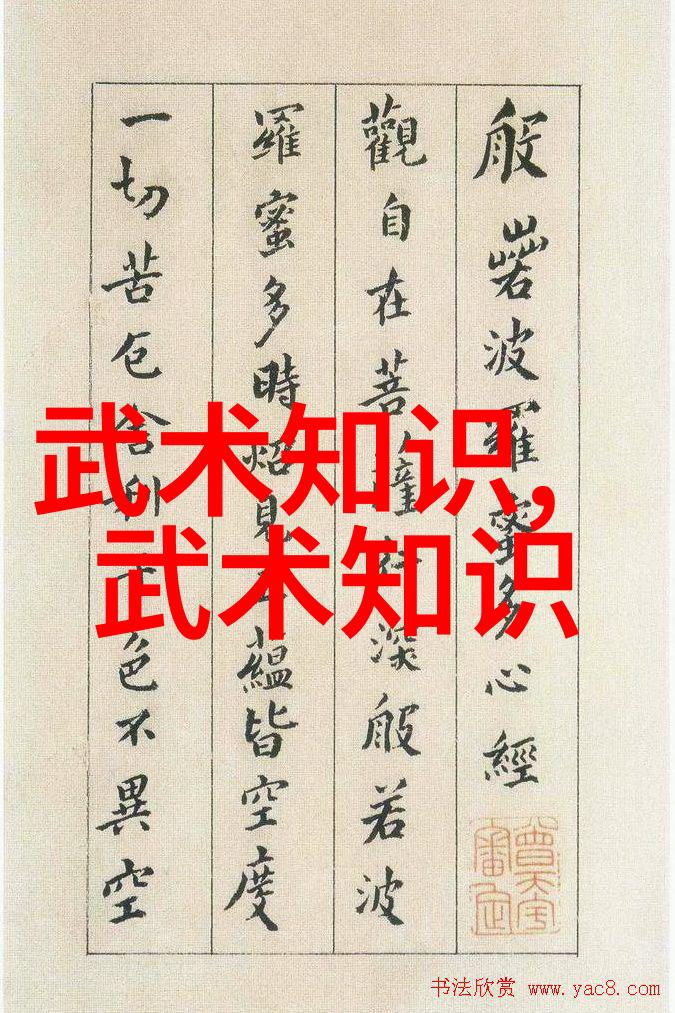 般若波羅蜜多心經
觀自在菩薩行深般若波
羅蜜多時炤見五蘊皆空度
一切苦厄舍利子色不異空
武术知识,
武术知识
书法欣赏 www.yac8.com